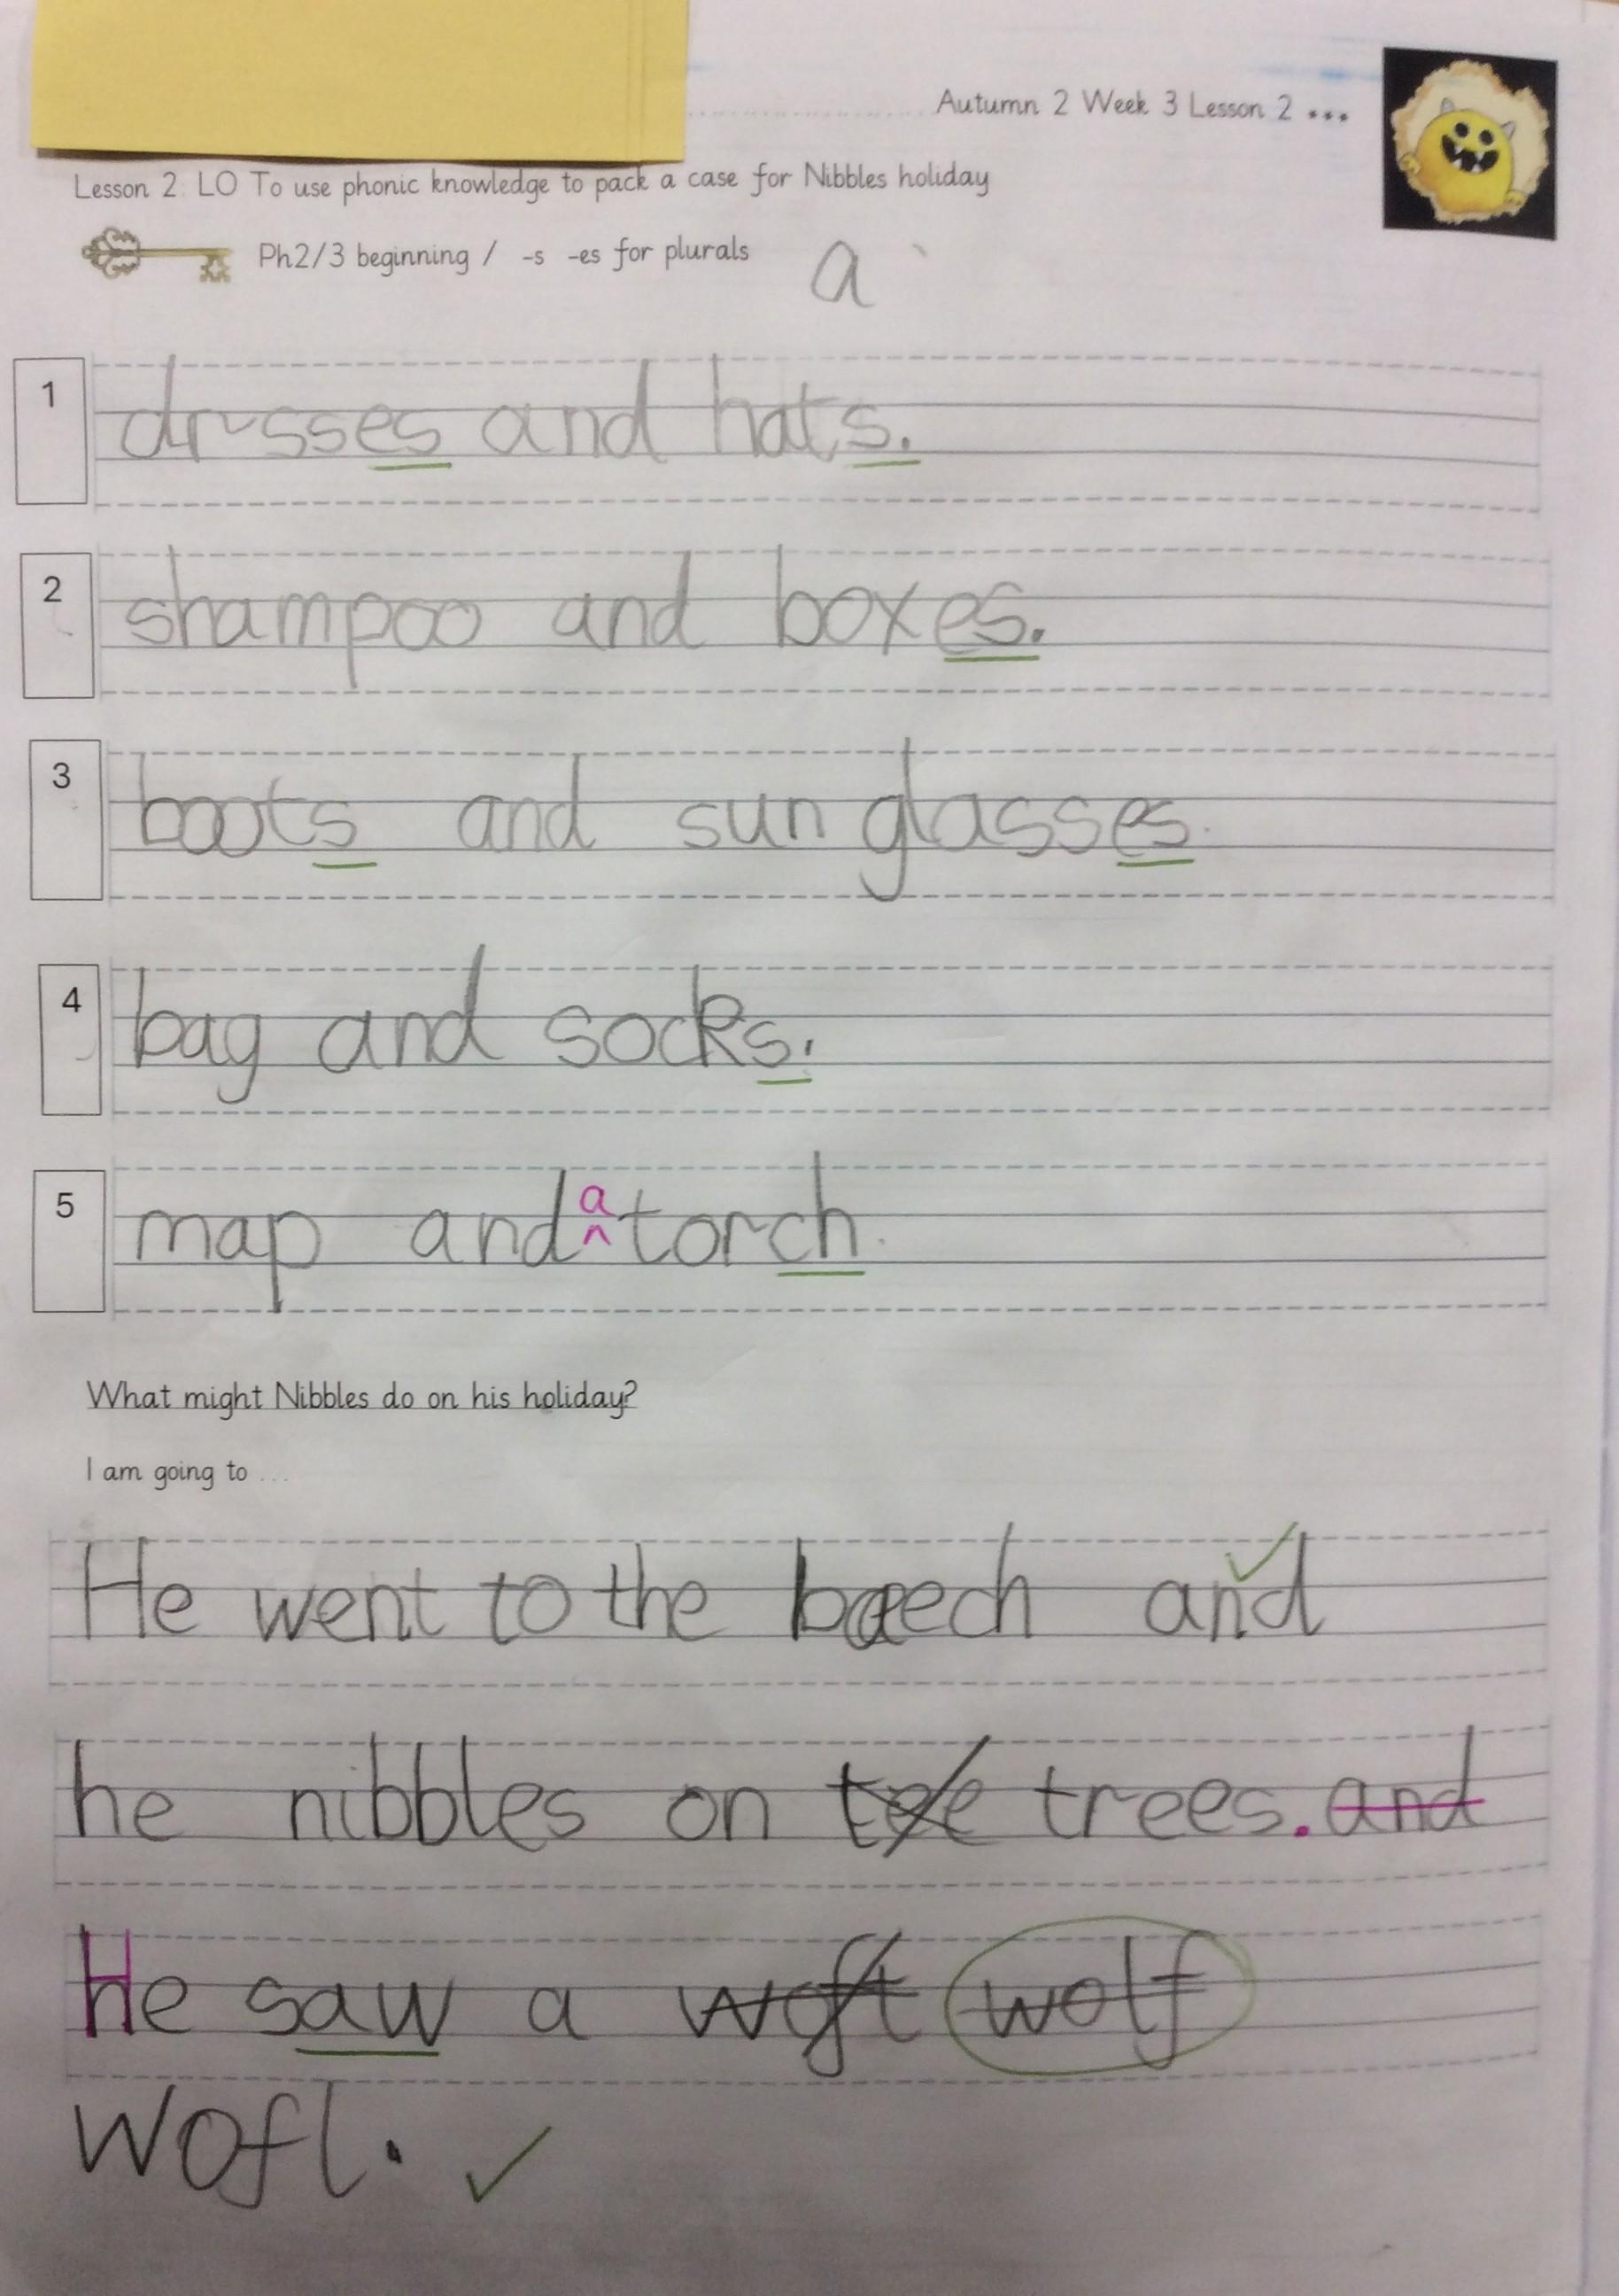 Autumn 2 Week 3 Lesson 2 •••
Lesson 2: LO To use phonic knowledge to pack a case for Nibbles holiday
Ph2/3 beginning / -s -es for plurals a
1 drsses and hats.
2 shampoo and boxes.
3 boots and sun glasses.
4 bag and socks.
5 map and a torch.
What might Nibbles do on his holiday?
I am going to ...
He went to the baech and
he nibbles on tee trees. and
He saw a woft wolf
wofl.